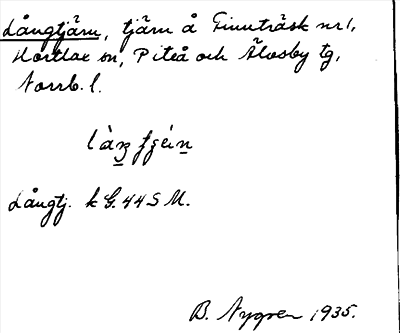 Långtjärn, tjärn å Finnträsk nr 1,
Hortlax sn, Piteå och Älvsby tg,
Norrb. l.
Långtj. k G. 44 S M.
B. Nygren 1935.